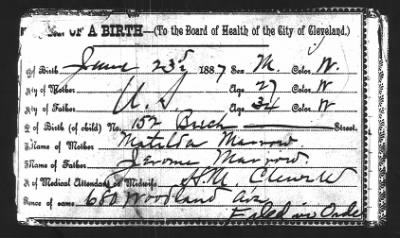 OF A BIRTH—(To the Board of Health of the City of Cleveland.)
of Birth June 23d 1887 Sex M. Color W.
ity of Mother Age 27 Color W
ity of Father U.S. Age 34 Color W
of Birth (of child) No. 152 Birch Street.
Name of Mother Matilda Marrow
Name of Father Jerome Marrow
of Medical Attendant or Midwife H.M.
ence of same 680 Woodland Ave
Filed in Order